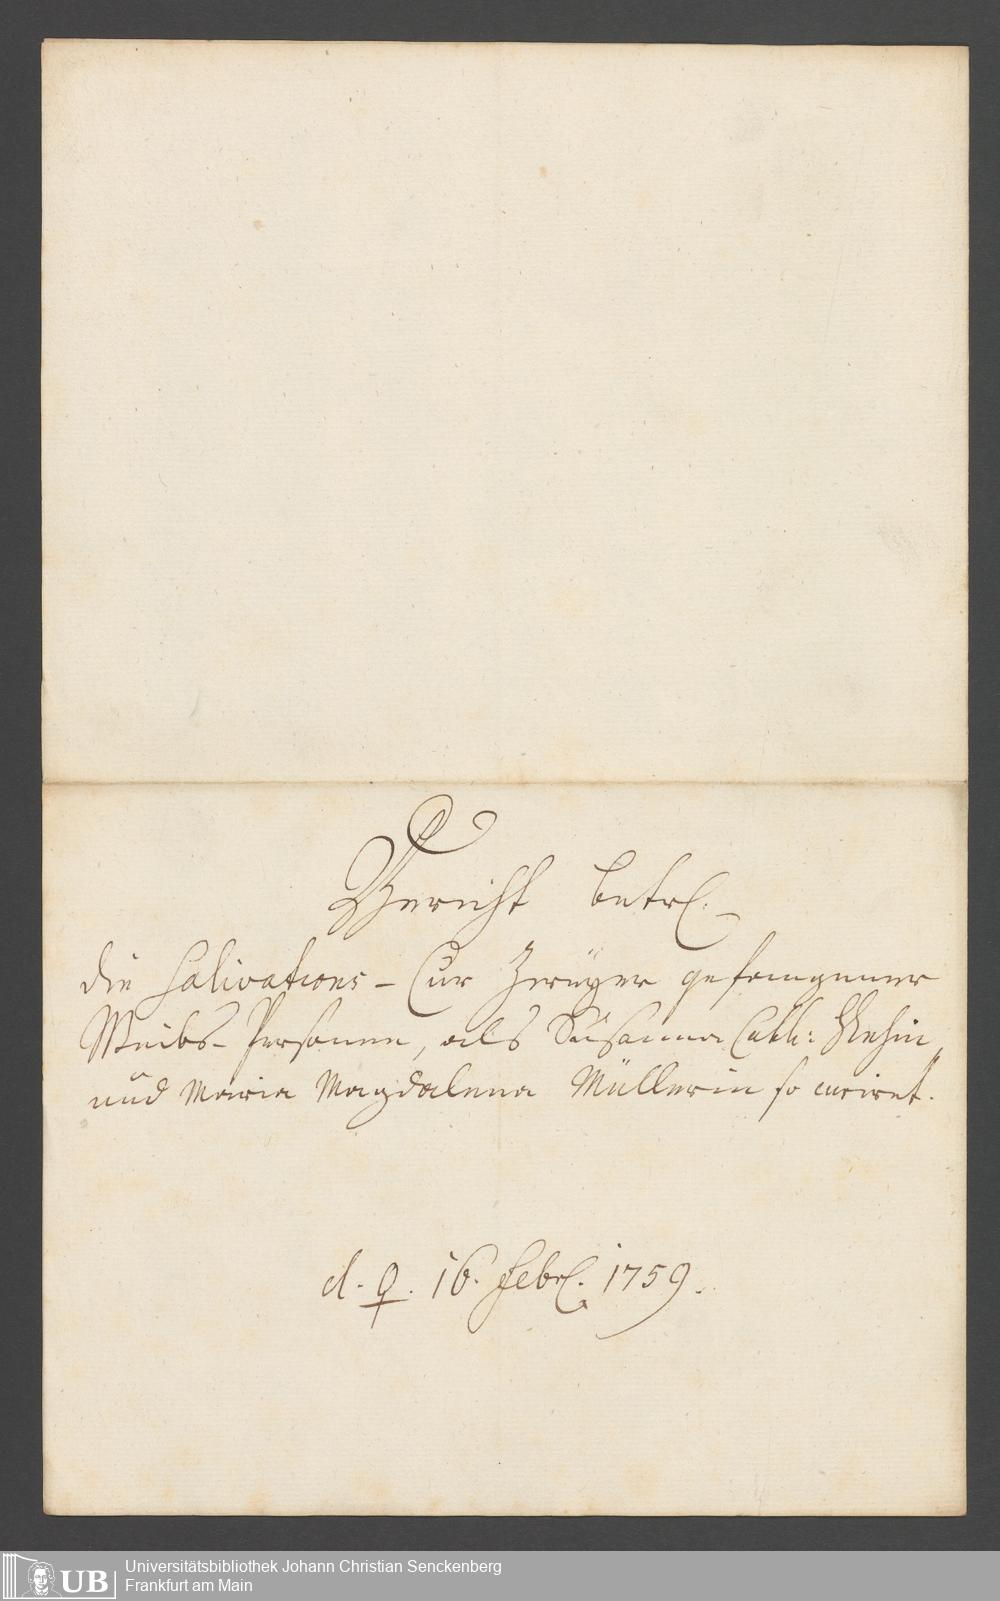 Bericht betrl.
die Salivations-Cur zweyer gefangener
Weibs-Personen, als Susanna Cath:
und Maria Magdalena Müllerin so curiret.
d. ♀. 16. Febrl. 1759.
Universitätsbibliothek Johann Christian Senckenberg
Frankfurt am Main
UB